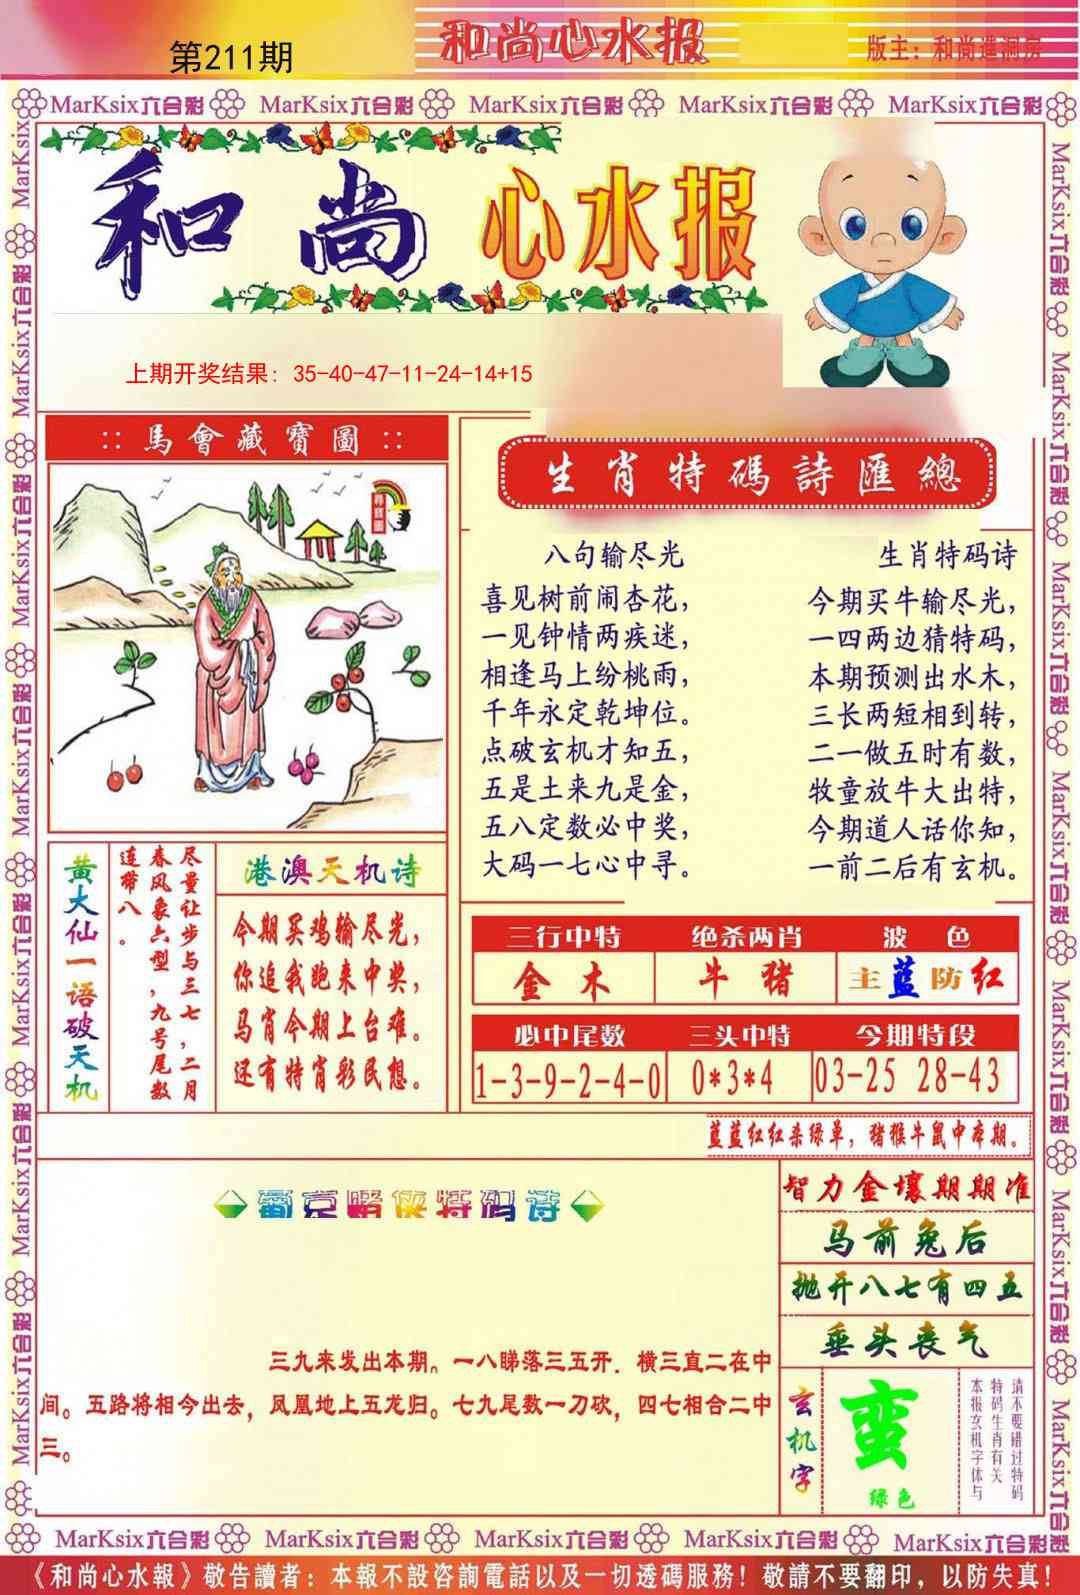 第211期
和尚心水报
版主：和尚進洞房
MarKsix六合彩 MarKsix六合彩 MarKsix六合彩 MarKsix六合彩 MarKsix六合彩
和尚 心水报
上期开奖结果: 35-40-47-11-24-14+15
:: 馬會藏寶圖 ::
尋寶圖
生肖特碼詩匯總
八句输尽光
喜见树前闹杏花，
一见钟情两疾迷，
相逢马上纷桃雨，
千年永定乾坤位。
点破玄机才知五，
五是土来九是金，
五八定数必中奖，
大码一七心中寻。
生肖特码诗
今期买牛输尽光，
一四两边猜特码，
本期预测出水木，
三长两短相到转，
二一做五时有数，
牧童放牛大出特，
今期道人话你知，
一前二后有玄机。
黄大仙一语破天机
尽量让步与三七，二月
春风象六型，九号尾数
连带八。
港澳天机诗
今期买鸡输尽光，
你追我跑来中奖，
马肖今期上台难。
还有特肖彩民想。
三行中特 绝杀两肖 波色
金木 牛猪 主蓝防红
必中尾数 三头中特 今期特段
1-3-9-2-4-0 0*3*4 03-25 28-43
蓝蓝红红杀绿单，猪猴牛鼠中本期。
葡京赌侠特码诗
三九来发出本期。一八睇落三五开．横三直二在中
间。五路将相今出去，凤凰地上五龙归。七九尾数一刀砍，四七相合二中
三。
智力金壤期期准
马前兔后
抛开八七有四五
垂头丧气
玄机字
蛮
绿色
请不要错过特码
特码生肖有关
本报玄机字体与
MarKsix六合彩 MarKsix六合彩 MarKsix六合彩 MarKsix六合彩 MarKsix六合彩
《和尚心水報》敬告讀者：本報不設咨詢電話以及一切透碼服務！敬請不要翻印，以防失真！